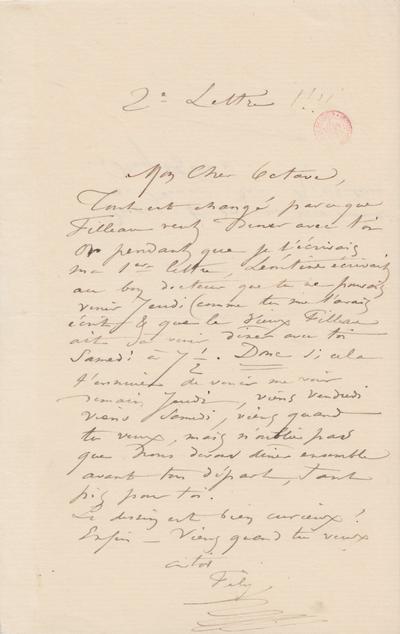 2e Lettre !!!!
Mon Cher Octave,
Tout est changé parce que
Filleau veut Diner avec toi
Or pendant que je t'écrivais
ma 1ère lettre, Léontine écrivait
au bon docteur que tu ne pouvais
venir Jeudi (comme tu me l'avais
écrit & que le vieux Filleau
ait à venir diner avec toi
Samedi à 7 1/2. Donc si cela
t'ennuie de venir me voir
demain Jeudi, viens vendredi
viens Samedi, viens quand
tu veux, mais n'oublie pas
que nous devons diner ensemble
avant ton départ, tant
pis pour toi.
Le dessin est bien curieux!
Enfin — Viens quand tu veux
à toi
Fély